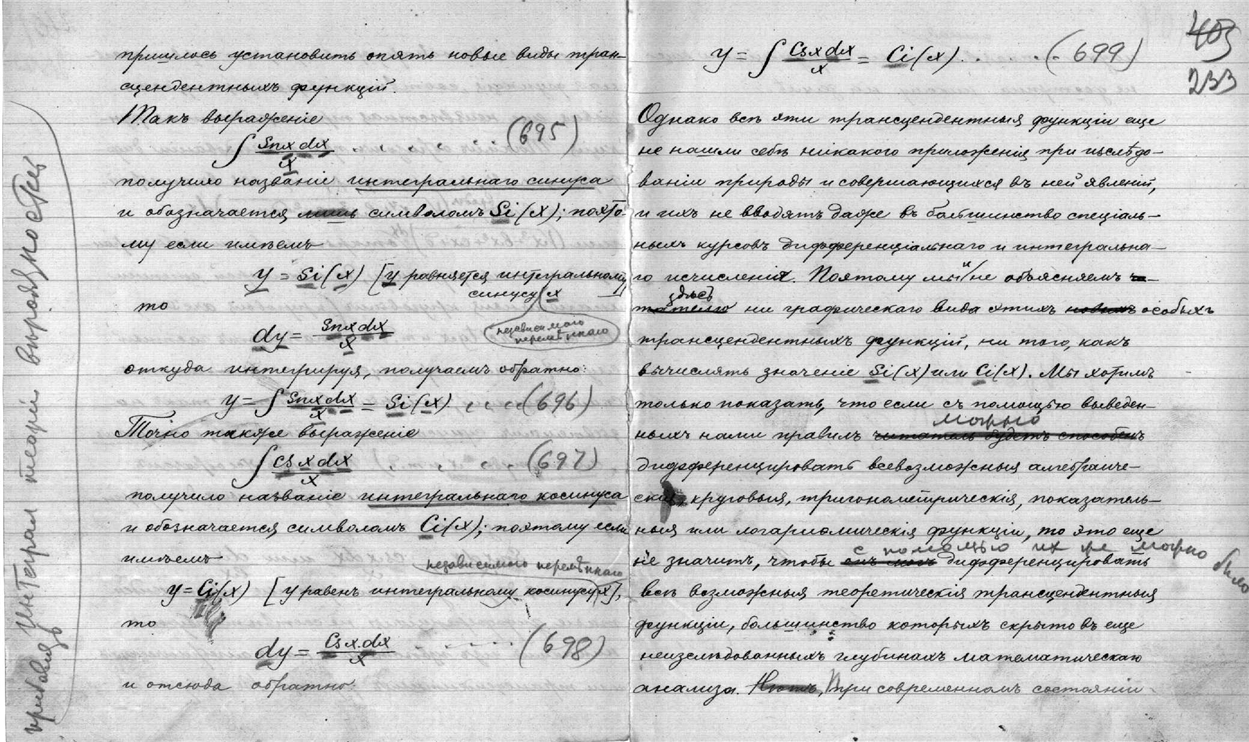 пришлось установить опять новые виды тран-
сцендентныхъ функцій.
Такъ выраженіе
∫ Snx dx / x . . . . . (695)
получило названіе интегральнаго синуса
и обозначается символомъ Si(x); поэто-
му если имѣемъ
y = Si(x) [y равняется интегральному
синусу x]
независимого перемѣннаго
то
dy = Snx dx / x
откуда интегрируя, получаемъ обратно:
y = ∫ Snx dx / x = Si(x) . . . . (696)
Точно также выраженіе
∫ Cs x dx / x . . . . (697)
получило названіе интегральнаго косинуса
и обозначается символомъ Ci(x); поэтому если
имѣемъ
независимого перемѣннаго
y = Ci(x) [y равенъ интегральному косинусу (x)],
то
dy = Csx.dx / x . . . . . (698)
и отсюда обратно
прибавлять Интеграл теоріи вѣроятности
403
233
y = ∫ Csx dx / x = Ci(x). . . . (699)
Однако всѣ эти трансцендентныя функціи еще
не нашли себѣ никакого приложенія при изслѣдо-
ваніи природы и совершающихся въ ней явленій,
и ихъ не вводятъ даже въ большинство спеціаль-
ныхъ курсовъ дифференціальнаго и интегральна-
го исчисленія. Поэтому мы и не объясняемъ
здѣсь
ни графическаго вида этихъ новыхъ особыхъ
трансцендентныхъ функцій, ни того, какъ
вычислять значеніе Si(x) или Ci(x). Мы хотимъ
только показать, что если съ помощью выведен-
можно
ныхъ нами правилъ читатель будетъ способенъ
дифференцировать всевозможныя алгебраиче-
скія, круговыя, тригонометрическія, показатель-
ныя или логариѳмическія функціи, то это еще
с помощью их же можно было
не значитъ, чтобы дифференцировать
всѣ возможныя теоретическія трансцендентныя
функціи, большинство которыхъ скрыто въ еще
неизслѣдованныхъ глубинахъ математическаго
анализа. При современномъ состояніи